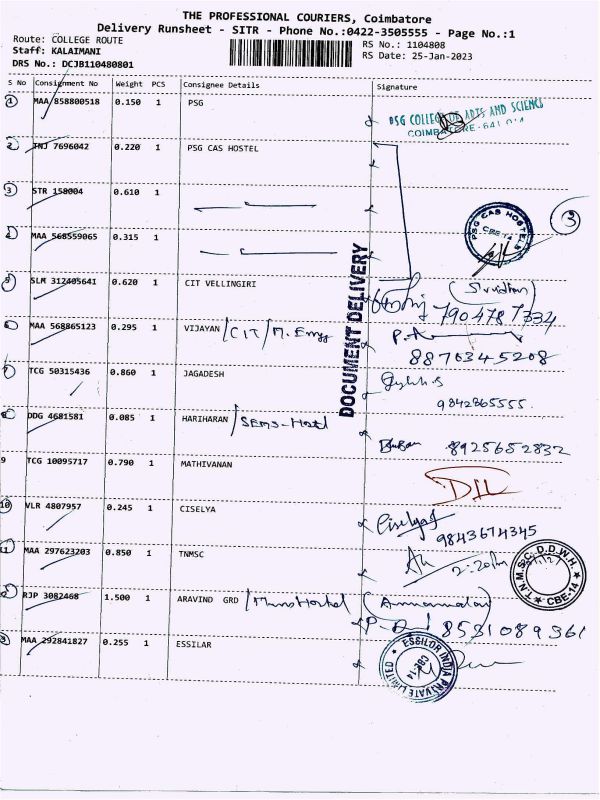 THE PROFESSIONAL COURIERS, Coimbatore
Delivery Runsheet - SITR - Phone No.:0422-3505555 - Page No.:1
Route: COLLEGE ROUTE
Staff: KALAIMANI
DRS No.: DCJB110480801
RS No.: 1104808
RS Date: 25-Jan-2023
S No Consignment No Weight PCS Consignee Details Signature
1 MAA 858800518 0.150 1 PSG
PSG COLLEGE OF ARTS AND SCIENCE
COIMBATORE-641 014
2 TNJ 7696042 0.220 1 PSG CAS HOSTEL
3 STR 158004 0.610 1
PSG CAS HOSTELS
CBE-14
3
4 MAA 568559065 0.315 1
DOCUMENT DELIVERY
5 SLM 312405641 0.620 1 CIT VELLINGIRI
7904787334
6 MAA 568865123 0.295 1 VIJAYAN /CIT/M. Engg
8870345208
7 TCG 50315436 0.860 1 JAGADESH
9842865555
8 DDG 4681581 0.085 1 HARIHARAN /SEMS-Hostl
8925652832
9 TCG 10095717 0.790 1 MATHIVANAN
10 VLR 4807957 0.245 1 CISELYA
Ciselya
9843674345
11 MAA 297623203 0.850 1 TNMSC
2:20Pm
T.N.M.S.C. D.D.W.H
CBE-14
12 RJP 3082468 1.500 1 ARAVIND GRD
(Annamalai)
8531089361
13 MAA 292841827 0.255 1 ESSILAR
ESSILOR INDIA PRIVATE LIMITED
CBE-14